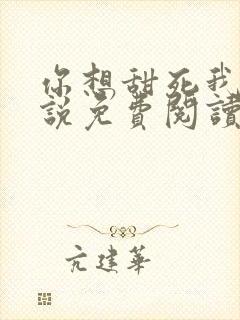 你想甜死我
說免費閱讀
亢建華